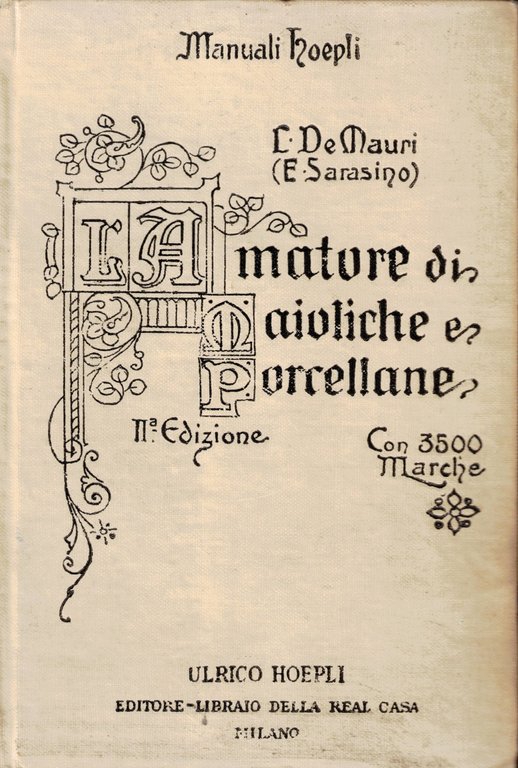 Manuali Hoepli
L. De Mauri
(E. Sarasino)
L'Amatore di
Maioliche e
Porcellane
IIª Edizione
Con 3500
Marche
ULRICO HOEPLI
EDITORE-LIBRAIO DELLA REAL CASA
MILANO